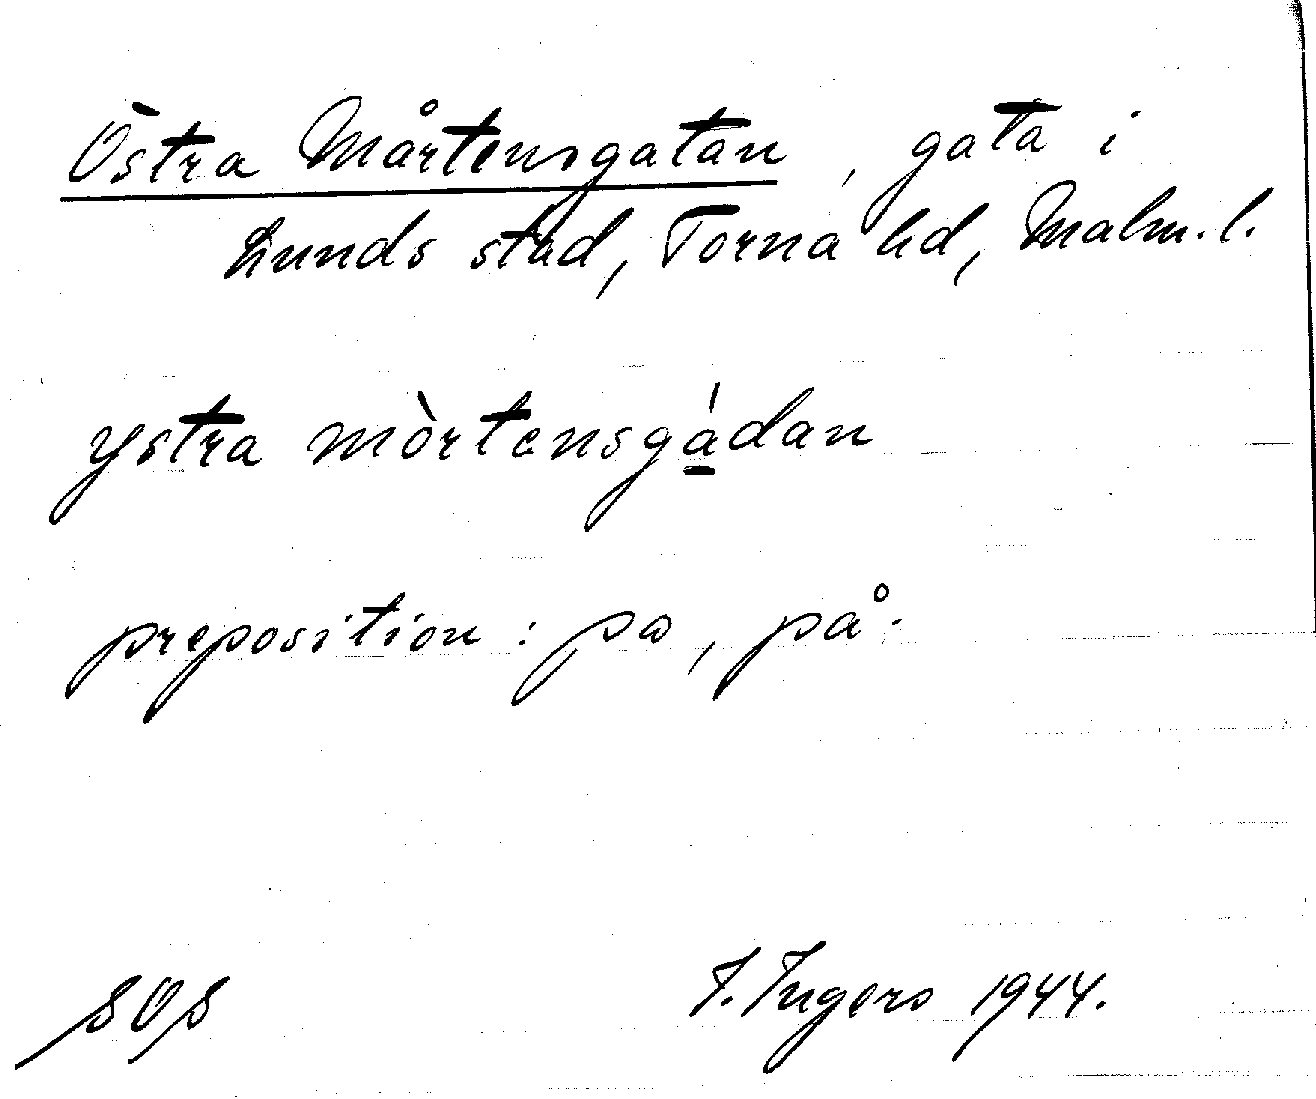 Östra Mårtensgatan, gata i
Lunds stad, Torna hd, Malm. l.
ystra mòrtensgá̱dan
preposition: po, på.
SOS
I. Ingers 1944.